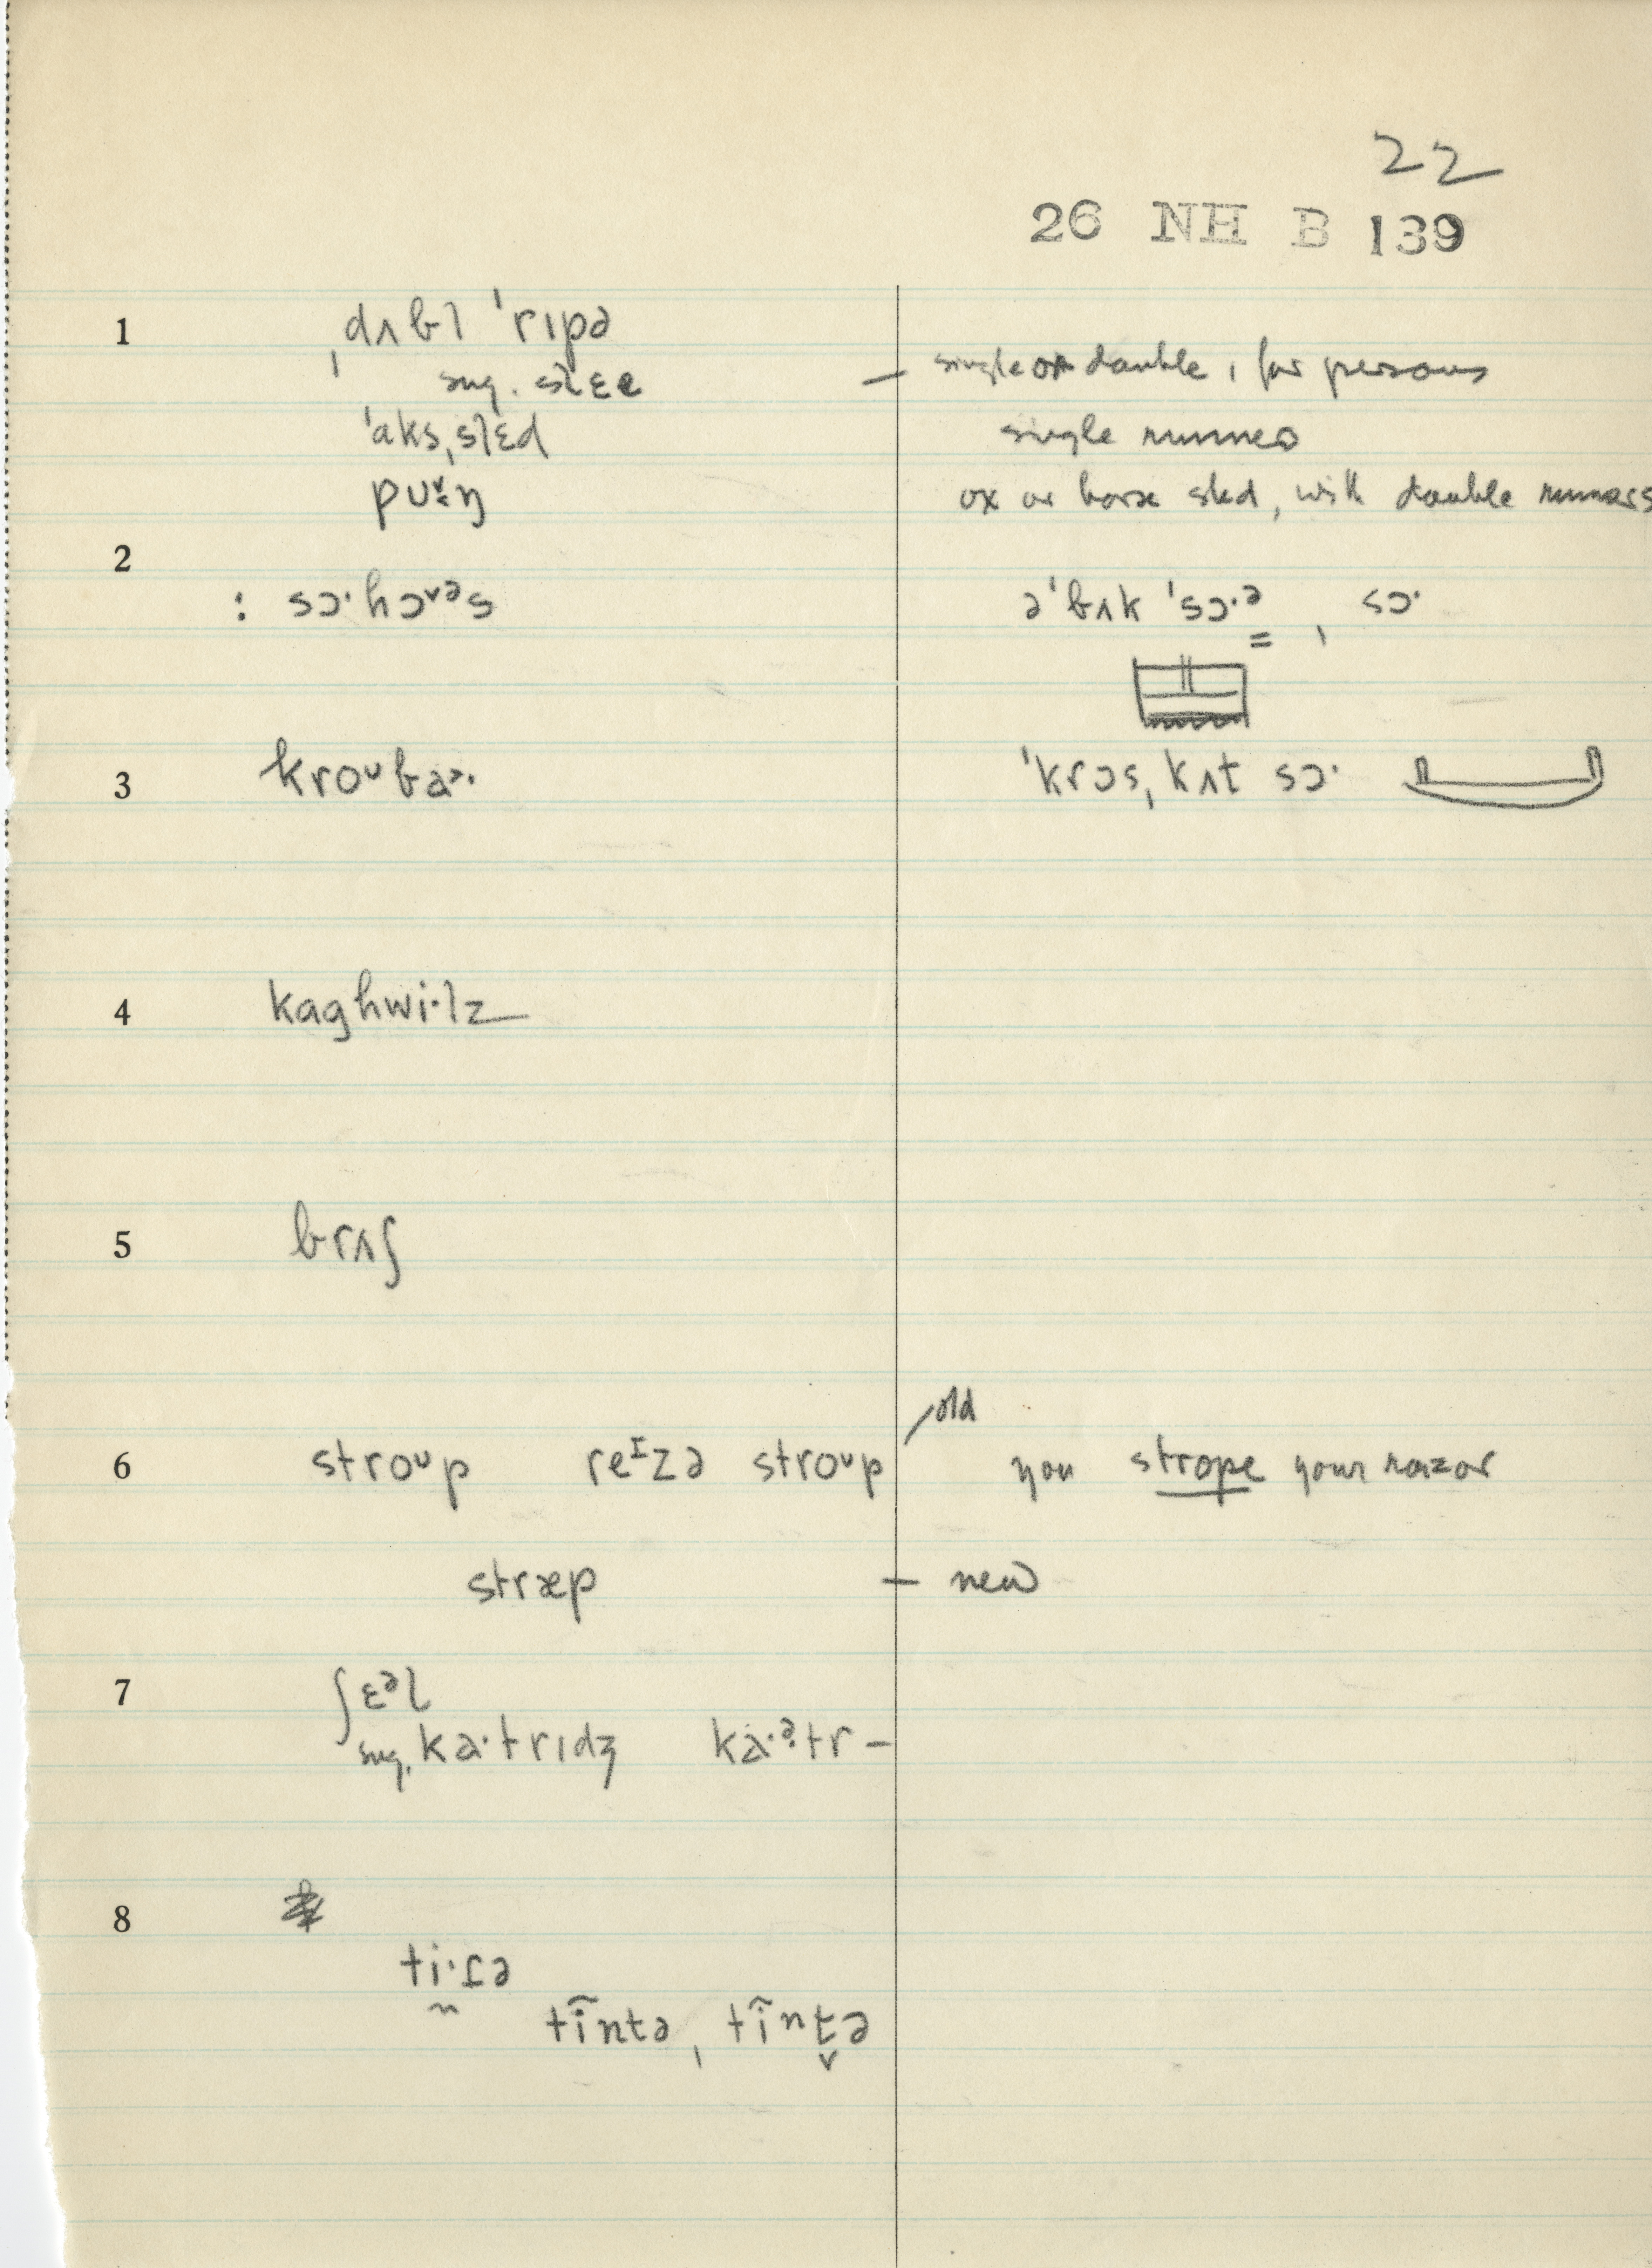 22
26 NH B 139
1 ˌdʌbl ˈrɪpə
sug. slɛe — single or double, for persons
ˈaksˌslɛd single runners
pʊŋ ox or horse sled, with double runners
2
: sɔ·hɔᵛᵊs əˈbʌk ˈsɔ·ᵊ , sɔ·
3 kroᴜba· ˈkrɔsˌkʌt sɔ·
4 kaghwi·lz
5 brʌʃ
6 stroᴜp reᴵzə stroᴜp / old you strope your razor
stræp — new
7 ʃɛᵊl
sug. ka·trɪdʒ ka·ᵊtr–
8
ti·ɾə
tĩntə, tĩnt̬ə